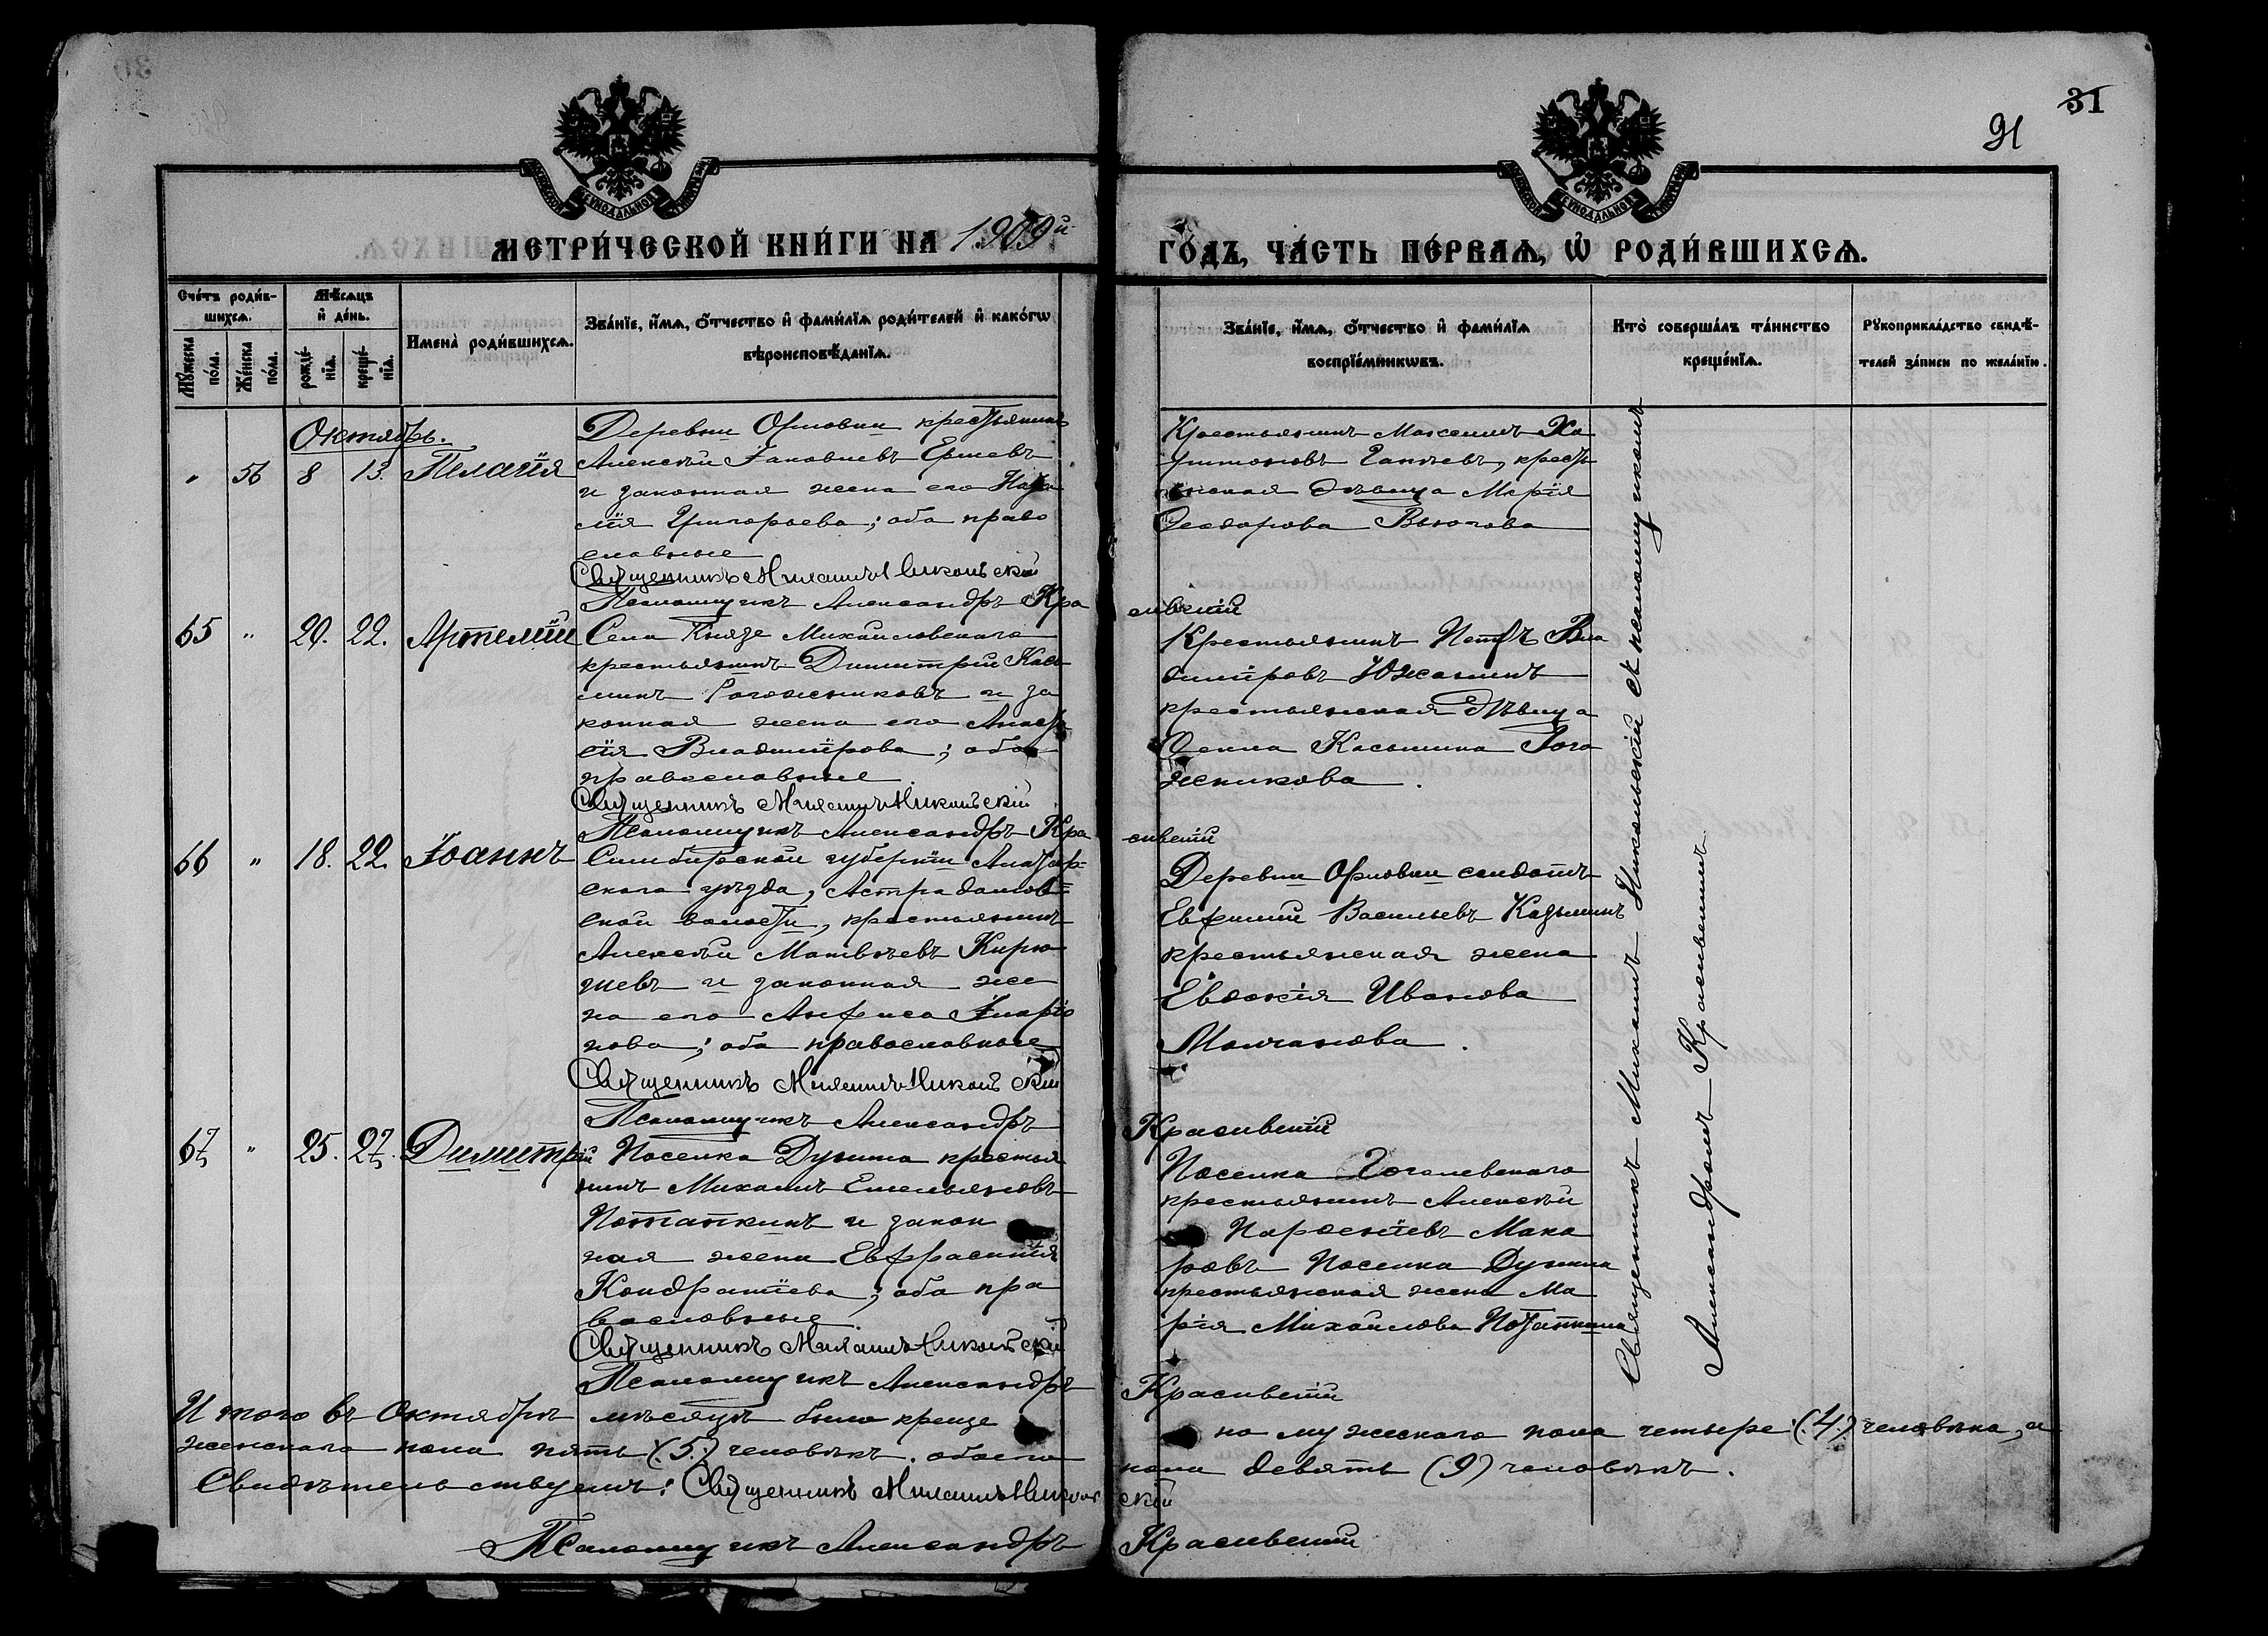 31
91
МЕТРИ́ЧЕСКОЙ КНИ́ГИ НА 1909й
ГО́ДЪ, ЧА́СТЬ ПЕ́РВАѦ, Ѡ҆ РОДИ́ВШИХСѦ.
Сче́тъ роди́в-
шихсѧ.
Мꙋ́жеска по́ла.
Же́нска по́ла.
Мѣ́сѧцъ
и҆ де́нь.
рожде́нїѧ.
креще́нїѧ.
Имена̀ роди́вшихсѧ.
Зва́нїе, и҆́мѧ, ѻ҆́тчество и҆ фами́лїѧ роди́телей и҆ како́гѡ
вѣроисповѣ́данїѧ.
Зва́нїе, и҆́мѧ, ѻ҆́тчество и҆ фами́лїѧ
воспрїе́мникѡвъ.
Кто̀ соверша́лъ та́инство
креще́нїѧ.
Рꙋкоприкла́дство свидѣ́-
телей за́писи по жела́нїю.
Октябрь.
" 56 8 13. Пелагія
Деревни Орловки крестьянинъ
Алексѣй Іаковлевъ Ершевъ
и законная жена его Ната
лія Григорьева; оба право
славные
Священникъ Михаилъ Никольскій
Псаломщикъ Александръ Кра
сивскій
Крестьянинъ Максимъ Ха
ритоновъ, кресть
янская дѣвица Марія
Ѳеодорова Вьюгова
65 " 20. 22. Артемій
Села Князе Михайловскаго
крестьянинъ Димитрій Кось
минъ Рогожниковъ и за
конная жена его Анаста
сія Владимірова; оба
православные.
Священникъ Михаилъ Никольскій
Псаломщикъ Александръ Кра
сивскій
Крестьянинъ Петръ Вла
диміровъ Южанинъ
крестьянская дѣвица
Косьмина Рого
жникова.
66 " 18. 22. Іоаннъ
Симбирской губерніи Алатыр=
скаго уѣзда, Астрадамов=
ской волости, крестьянинъ
Алексѣй Матвѣевъ Кирю
шевъ и законная же
на его Анфиса Иларіо
нова; оба православные
Священникъ Михаилъ Никольскій
Псаломщикъ Александръ
Красивскій
Деревни Орловки солдатъ
Евфимій Васильевъ Казьминъ
крестьянская жена
Евдокія Иванова
Молчанова.
67 " 25. 27. Димитрій
Поселка крестья
нинъ Михаилъ Емельяновъ
Потапкинъ и закон
ная жена Евфрасинія
Кондратіева; оба пра
вославные.
Священникъ Михаилъ Никольскій
Псаломщикъ Александръ
Красивскій
Поселка Гоголевскаго
крестьянинъ Алексѣй
Парѳеніевъ Мака
ровъ Поселка
крестьянская жена Ма
рія Михайлова Потапкина
Священникъ Михаилъ Никольскій съ псаломщикомъ
Александромъ Красивскимъ.
Итого въ Октябрѣ мѣсяцѣ было креще но мужескаго пола четыре (4) человѣка, а
женскаго пола пять (5) человѣкъ. обоего пола девять (9) человѣкъ.
Свидѣтельствуемъ: Священникъ Михаилъ Никольскій
Псаломщикъ Александръ Красивскій